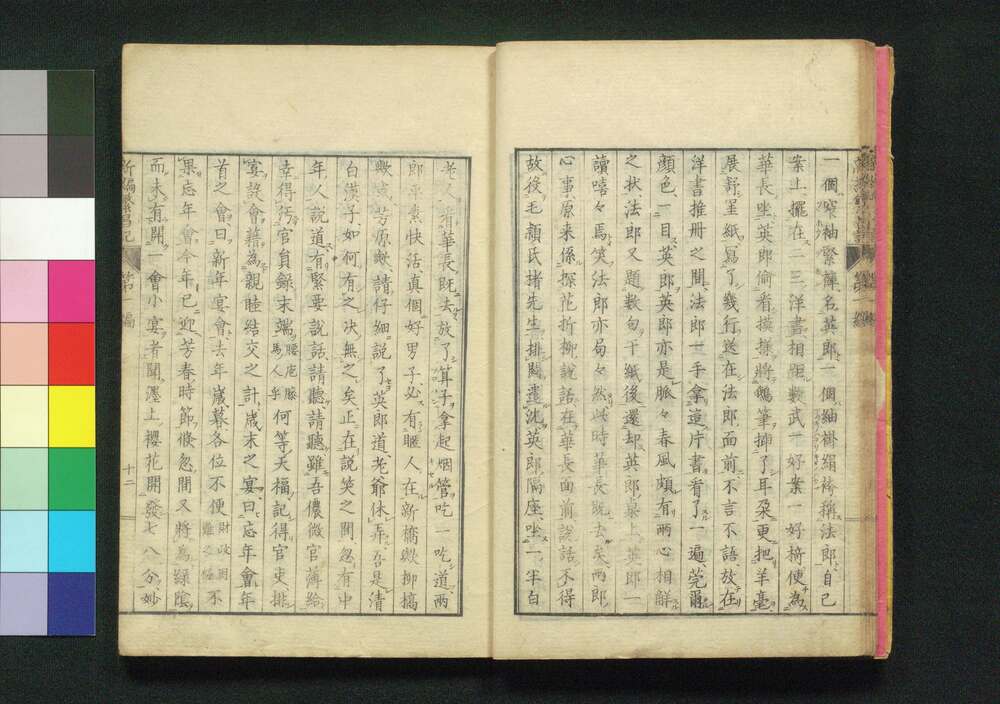 一個窄袖緊𧛸名英郎一個紬褂絹袴稱法郎自己
案上擺在二三洋書相距數武一好案一好椅使為
華長坐英郎偷看摸樣將鵝筆揷了耳朶更把羊毫
展舒罣紙寫了幾行送在法郎面前不言不語放在
洋書推冊之間法郎一手拿這片書看了一遍莞爾
顏色一目英郎英郎亦是脈々春風頗有兩心相解
之狀法郎又題數句于紙後還却英郎案上英郎一
讀嘻々焉笑法郎亦局々然此時華長旣去矣兩郎
心事原來係探花折柳說話在華長面前說話不得
故役毛穎氏楮先生排悶遣沈英郎隔座坐一半白
老人看華長旣去放了算子拿起烟管吃一吃道兩
郎平素快活真個好男子必有暱人在新橋歟柳橋
歟濱芳原歟請仔細說了英郎道老爺休弄吾是清
白漢子如何有之決無之矣正在說笑之間忽有中
年人說道有緊要說話請聽請聽雖吾儂微官薄給
幸得污官員錄末端腰疱膝馬人乎何等天福記得官吏排
宴設會藉為親睦結交之計歲末之宴曰忘年會年
首之會曰新年宴會去年歲暮各位不便財政困難之俗不
果忘年會今年已迎芳春時節倏忽間又將為綠陰
而未有開一會小宴者聞墨上櫻花開發七八分妙
新編繁昌記 第一編 十二